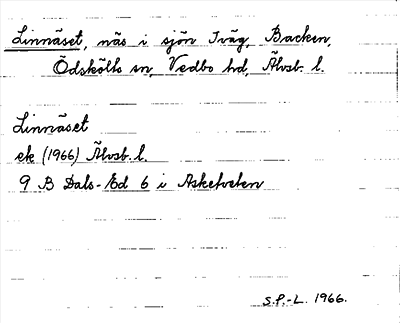 Linnäset, näs i sjön Iväg, Backen,
Ödskölts sn, Vedbo hd, Älvsb. l.
Linnäset
ek (1966) Älvsb. l.
9 B Dals-Ed 6 i Asketveten
S.P.-L. 1966.